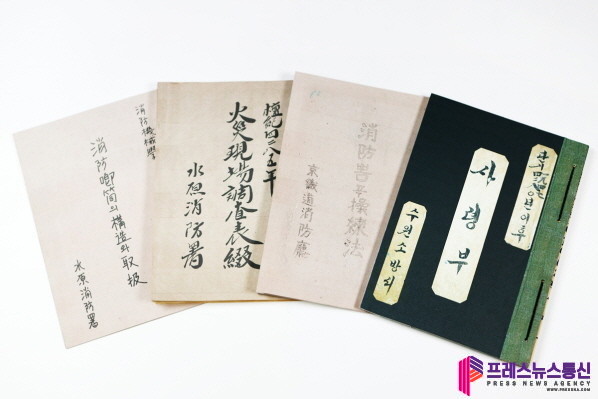 消防機械學
消防喞筒의 構造와 取扱
水原消防署
檀紀四二八五年
火災現場調査表綴
水原消防署
消防 操練法
京畿道消防廳
년이후
사령부
수원소방서
프레스뉴스통신
PRESS NEWS AGENCY